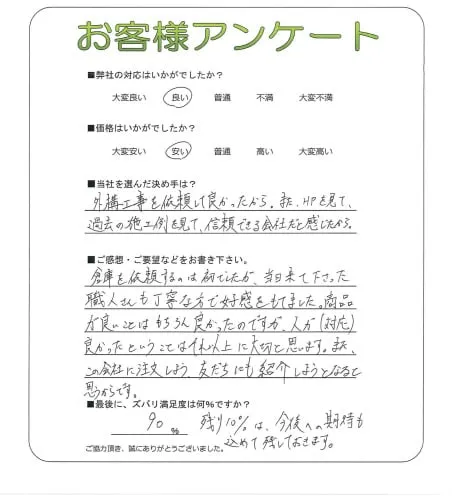 お客様アンケート
■弊社の対応はいかがでしたか？
大変良い 良い 普通 不満 大変不満
■価格はいかがでしたか？
大変安い 安い 普通 高い 大変高い
■当社を選んだ決め手は？
外構工事を依頼して良かったから。また、HPを見て、
過去の施工例を見て、信頼できる会社だと感じたから。
■ご感想・ご要望などをお書き下さい。
倉庫を依頼するのは初でしたが、当日来て下さった
職人さんも丁寧な方で好感をもてました。商品
が良いことはもちろん良かったのですが、人が(対応)
良かったということはそれ以上に大切と思います。また、
この会社に注文しよう、友だちにも紹介しようとなると
思うからです。
■最後に、ズバリ満足度は何％ですか？
90 % 残り10%は、今後への期待も
込めて残しておきます。
ご協力頂き、誠にありがとうございました。